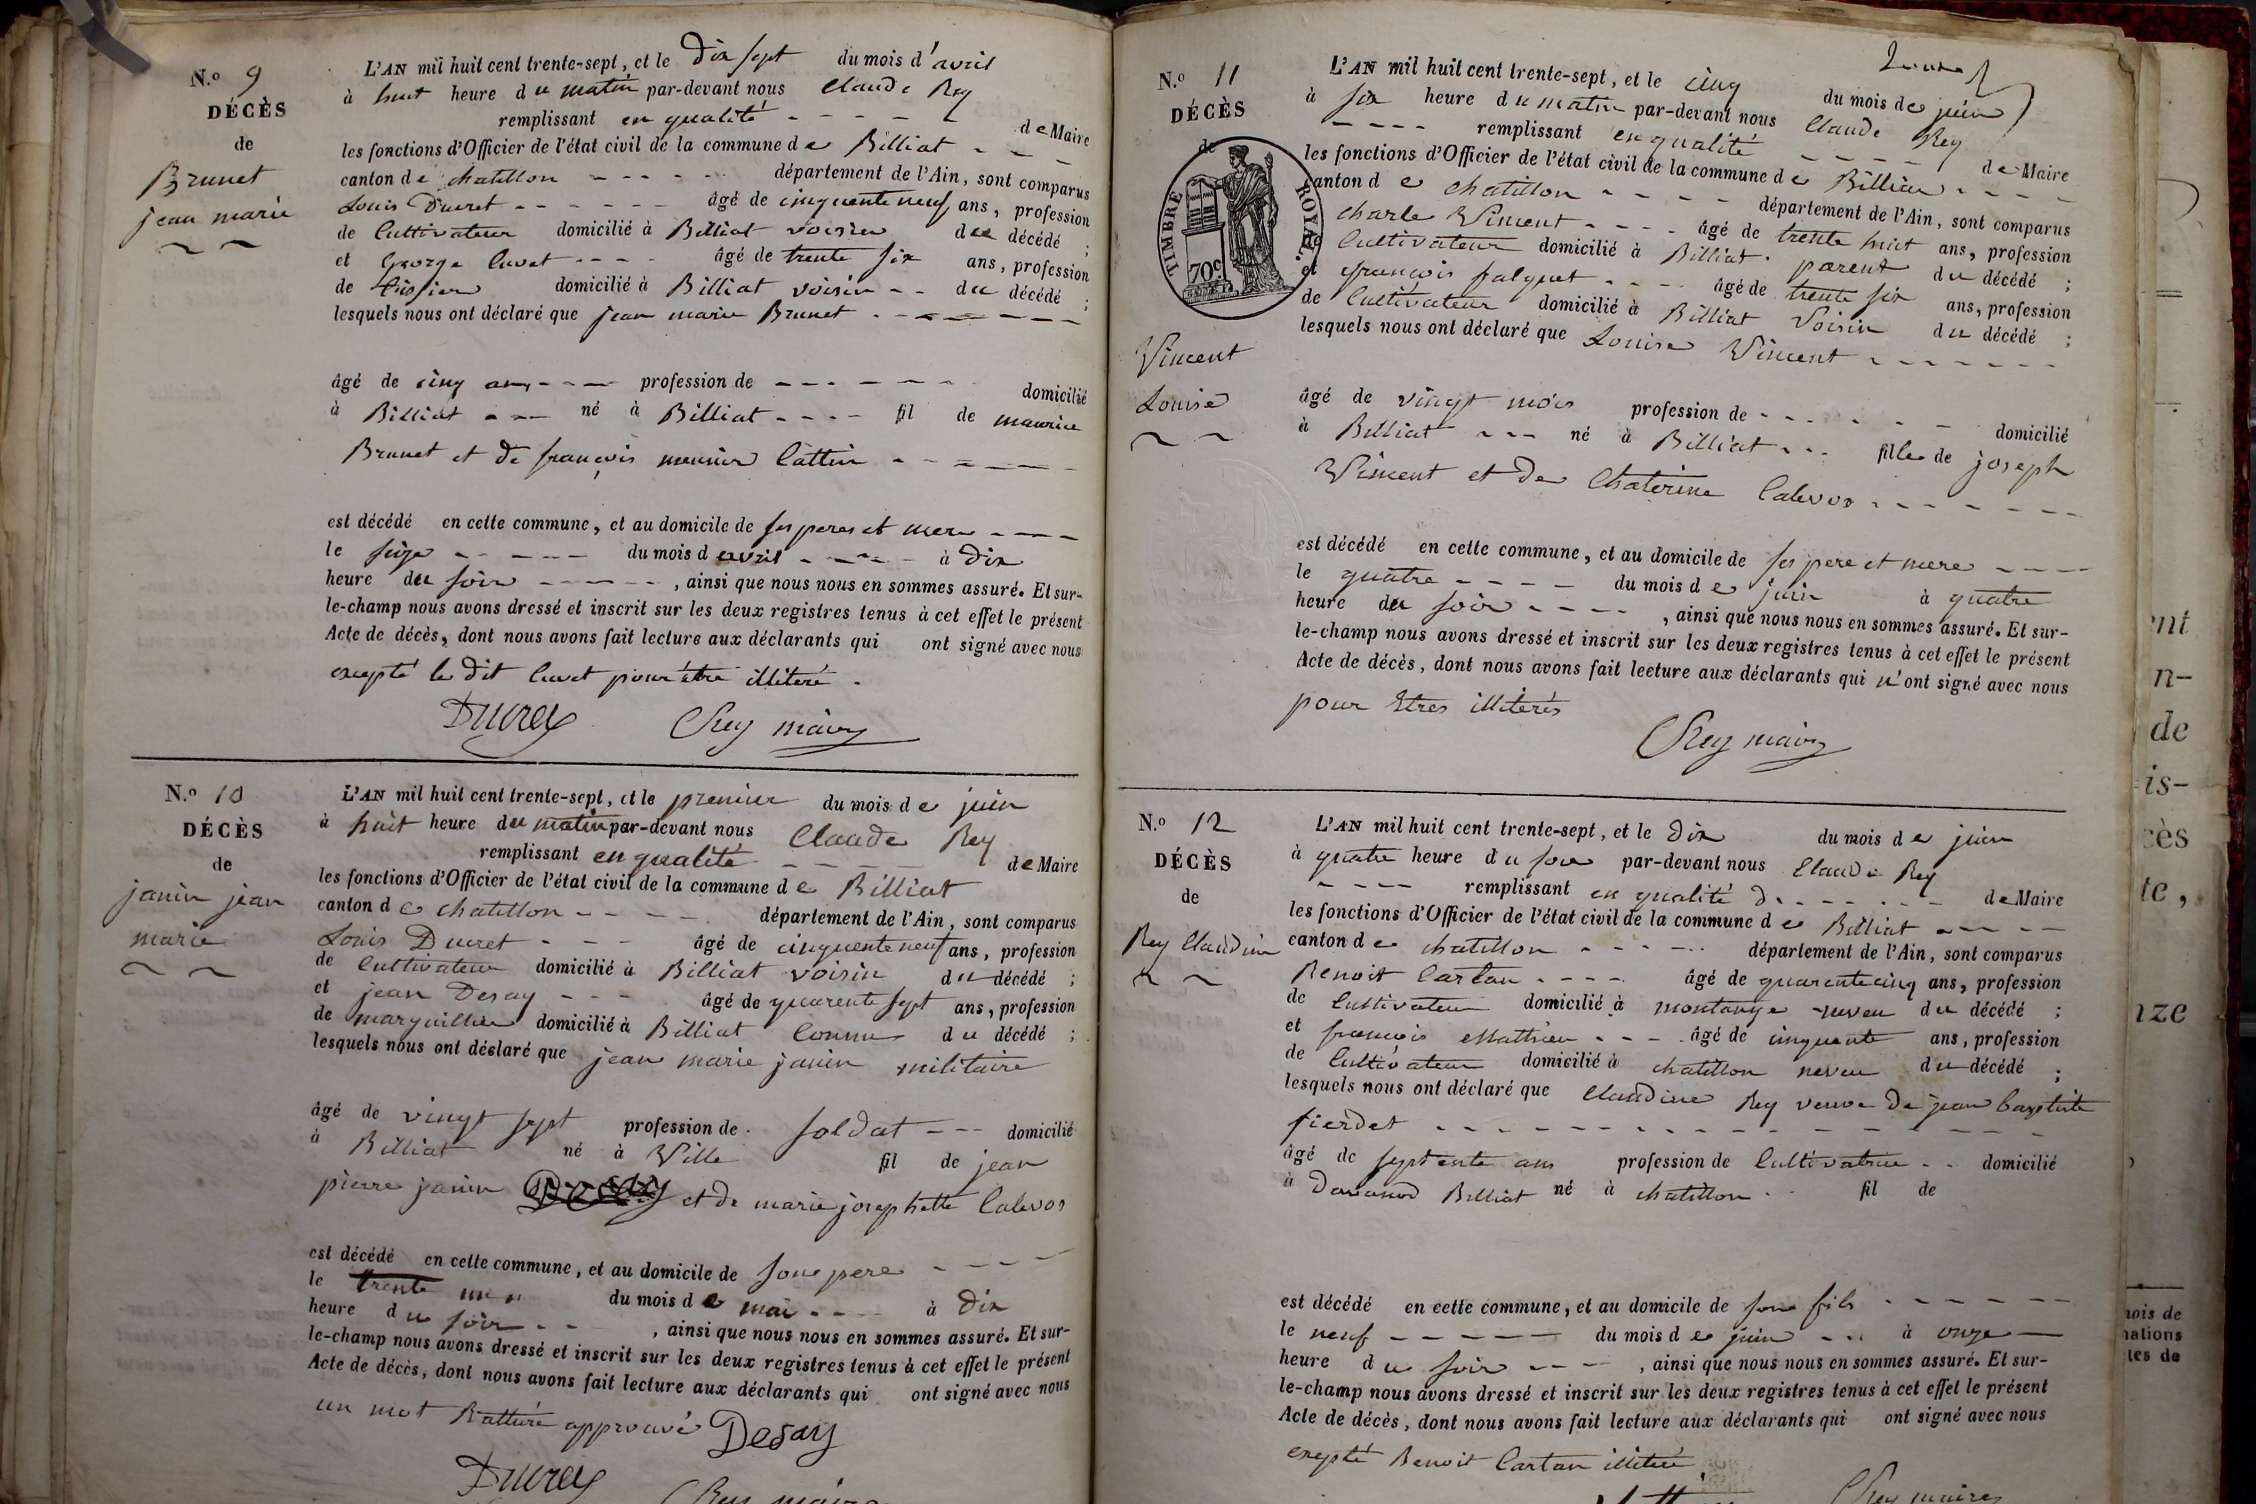 N.º 9
DÉCÈS
de
Brunet
jean marie
L'AN mil huit cent trente-sept, et le dix sept du mois d'avril
à huit heure du matin par-devant nous Claude Rey
remplissant en qualité de Maire
les fonctions d'Officier de l'état civil de la commune de Billiat
canton de chatillon département de l'Ain, sont comparus
Louis Ducret âgé de cinquente neuf ans, profession
de Cultivateur domicilié à Billiat voisin du décédé ;
et George Cuvet âgé de trente six ans, profession
de tissier domicilié à Billiat voisin du décédé ;
lesquels nous ont déclaré que jean marie Brunet
âgé de cinq ans profession de domicilié
à Billiat né à Billiat fil de maurice
Brunet et de françois meunier Cattin
est décédé en cette commune, et au domicile de ses peres et mere
le seize du mois d avril à dix
heure du soir , ainsi que nous nous en sommes assuré. Et sur-
le-champ nous avons dressé et inscrit sur les deux registres tenus à cet effet le présent
Acte de décès, dont nous avons fait lecture aux déclarants qui ont signé avec nous
excepté le dit Cuvet pour être illiteré .
Ducret CRey maire
N.º 10
DÉCÈS
de
janin jean
marie
L'AN mil huit cent trente-sept, et le premier du mois de juin
à huit heure du matin par-devant nous Claude Rey
remplissant en qualité de Maire
les fonctions d'Officier de l'état civil de la commune de Billiat
canton de chatillon département de l'Ain, sont comparus
Louis Ducret âgé de cinquente neuf ans, profession
de Cultivateur domicilié à Billiat voisin du décédé ;
et jean Desay âgé de quarente sept ans, profession
de marguillier domicilié à Billiat Connu du décédé ;
lesquels nous ont déclaré que jean marie janin militaire
âgé de vingt sept profession de soldat domicilié
à Billiat né à Ville fil de jean
pierre janin et de marie josephette Calevos
est décédé en cette commune, et au domicile de son pere
le trente un du mois de mai à dix
heure du soir , ainsi que nous nous en sommes assuré. Et sur-
le-champ nous avons dressé et inscrit sur les deux registres tenus à cet effet le présent
Acte de décès, dont nous avons fait lecture aux déclarants qui ont signé avec nous
un motRatturé approuvé Desay
Ducret CRey maire
N.º 11
DÉCÈS
de
TIMBRE ROYAL.
70c.
Vincent
Louise
L'AN mil huit cent trente-sept, et le cinq du mois de juin
à six heure du matin par-devant nous Claude Rey
remplissant en qualité de Maire
les fonctions d'Officier de l'état civil de la commune de Billiat
canton de chatillon département de l'Ain, sont comparus
charle Vincent âgé de trente huit ans, profession
Cultivateur domicilié à Billiat parent du décédé ;
et françois falquet âgé de trente six ans, profession
de Cultivateur domicilié à Billiat Voisin du décédé ;
lesquels nous ont déclaré que Louise Vincent
âgé de vingt mois profession de domicilié
à Billiat né à Billiat fille de joseph
Vincent et de Chaterine Calevos
est décédé en cette commune, et au domicile de ses pere et mere
le quatre du mois de juin à quatre
heure du soir , ainsi que nous nous en sommes assuré. Et sur-
le-champ nous avons dressé et inscrit sur les deux registres tenus à cet effet le présent
Acte de décès, dont nous avons fait lecture aux déclarants qui n'ont signé avec nous
pour Etres illiterés
CRey maire
N.º 12
DÉCÈS
de
Rey Claudine
L'AN mil huit cent trente-sept, et le dix du mois de juin
à quatre heure du soir par-devant nous Claude Rey
remplissant en qualité d de Maire
les fonctions d'Officier de l'état civil de la commune de Billiat
canton de chatillon département de l'Ain, sont comparus
Benoit Cartan âgé de quarente cinq ans, profession
de Cultivateur domicilié à montange neveu du décédé ;
et françois Matthieu âgé de cinquente ans, profession
de Cultivateur domicilié à chatillon neveu du décédé ;
lesquels nous ont déclaré que Claudine Rey veuve de jean baptiste
fierdet
âgé de septente ans profession de Cultivatrice domicilié
à Billiat né à chatillon fil de
est décédé en cette commune, et au domicile de son fils
le neuf du mois de juin à onze
heure du soir , ainsi que nous nous en sommes assuré. Et sur-
le-champ nous avons dressé et inscrit sur les deux registres tenus à cet effet le présent
Acte de décès, dont nous avons fait lecture aux déclarants qui ont signé avec nous
excepté Benoit Cartan illiteré
CRey maire